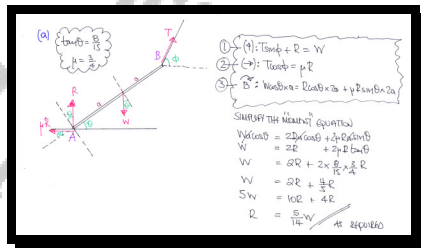 (a)
tanθ = 8/15
μ = 3/4
T
B
ϕ
a
a
R
θ
W
μR
A
θ
① (↑): Tsinϕ + R = W
② (→): Tcosϕ = μR
③ B: Wcosθ×a = Rcosθ×2a + μRsinθ×2a
SIMPLIFY THE "MOMENT" EQUATION
Wacosθ = 2Racosθ + 2μRasinθ
W = 2R + 2μRtanθ
W = 2R + 2×8/15×3/4R
W = 2R + 4/5R
5W = 10R + 4R
R = 5/14 W
AS REQUIRED